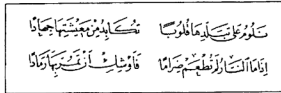 نلوم على تبلدها قلوبًا تكابد من معيشتها جهادًا
إذا ما النار لم تطعم ضرامًا فأوشك أن تمر بها رمادًا